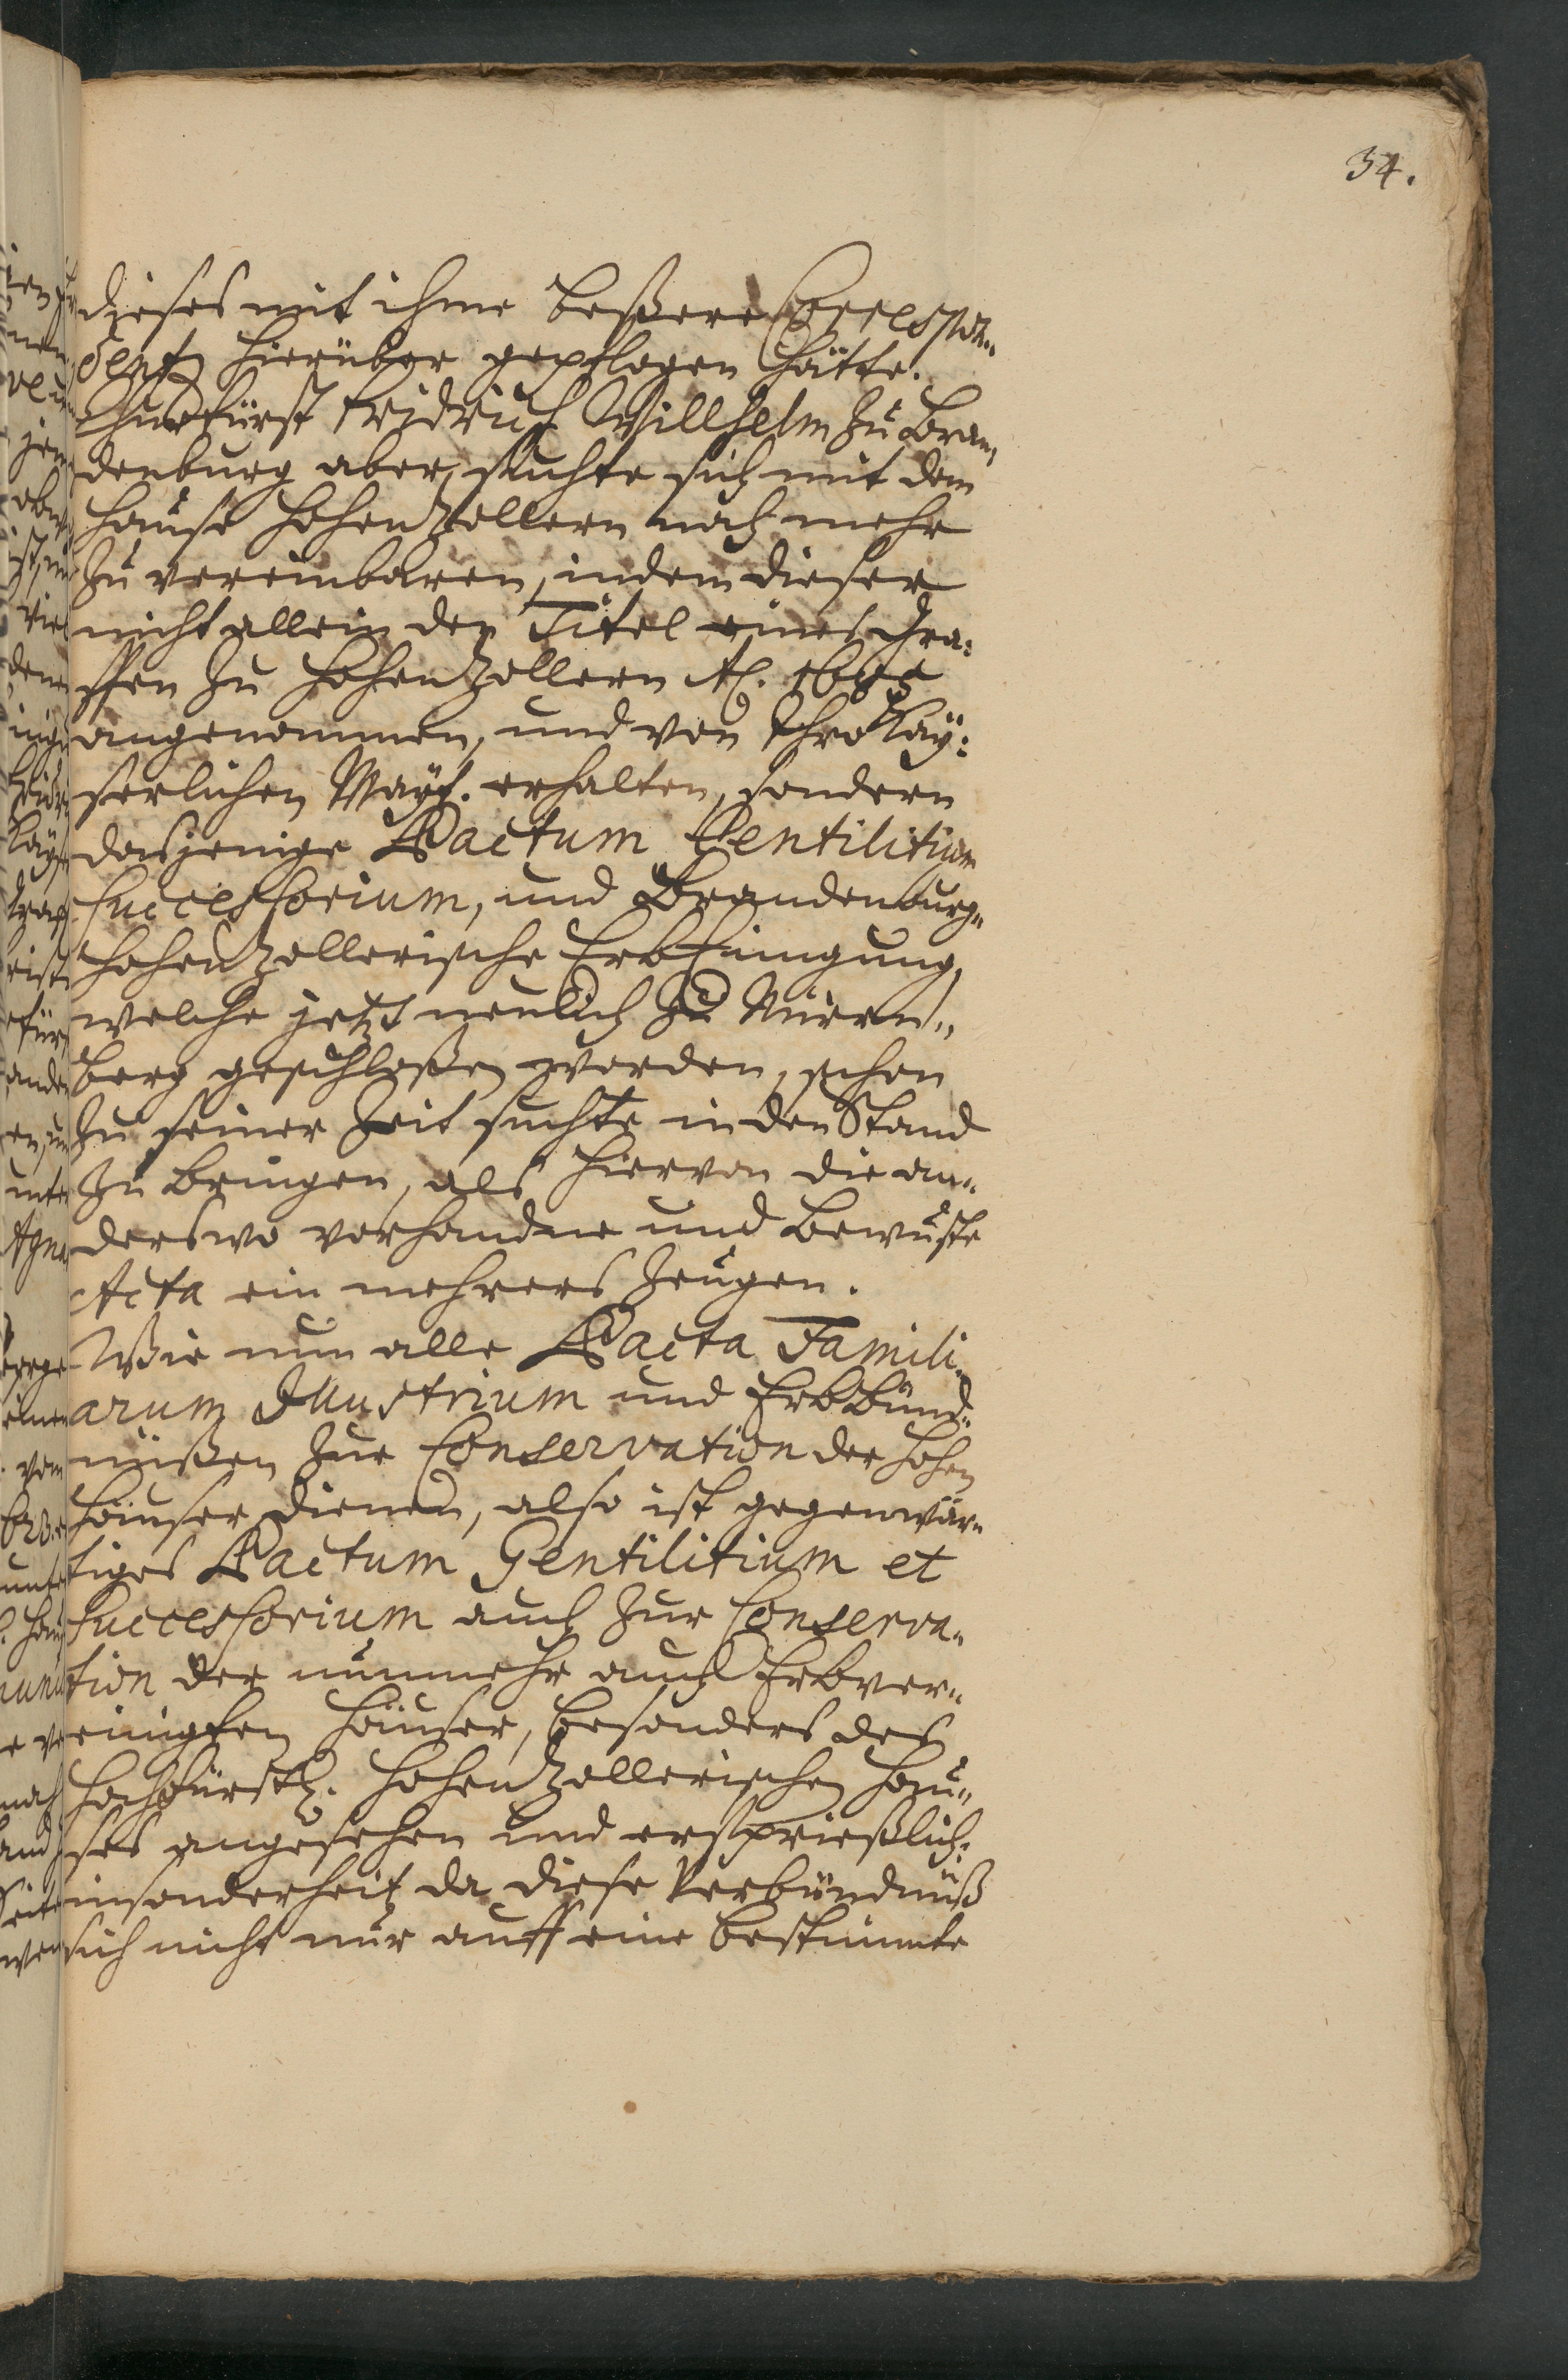 34.
dieses mit ihme beßere Correspon„
dentz hierüber gepflogen hätte.
Churfürst Fridrich Willhelm zu Bran„
denburg aber, suchte sich mit dem
Hause Hohenzollern noch mehr
zu vereinbaren, indem dieser
nicht allein den Titel eines Gra:
ffen zu Hohenzollern Aō.
angenommen, und von Ihro Kaÿ:
serlichen Maÿt. erhalten, sondern
dasjenige Pactum Gentilitium
Successorium, und Brandenburg„
Hohenzollerische ErbEinigung,
welche jetzt neulich zu Nürrn„
berg geschloßen worden, schon
zu seiner Zeit suchte in den Stand
zu bringen, als hiervon die an„
derswo vorhandne und bewuste
Acta ein mehrers zeugen.
Wie nun alle Pacta Famili„
arum Illustrium und Erbbünd„
nüßen zur Conservation der Hohen
Häuser dienen, also ist gegenwär„
tiges Pactum Gentilitium et
Successorium auch zur Conserva„
tion der nunmehr auch Erbver„
einigten Häuser, besonders des
Hochfürstl. Hohenzollerischen Hau„
ses angesehen und ersprießlich.
insonderheit da diese Verbündnüß
sich nicht nur auff eine bestimmte